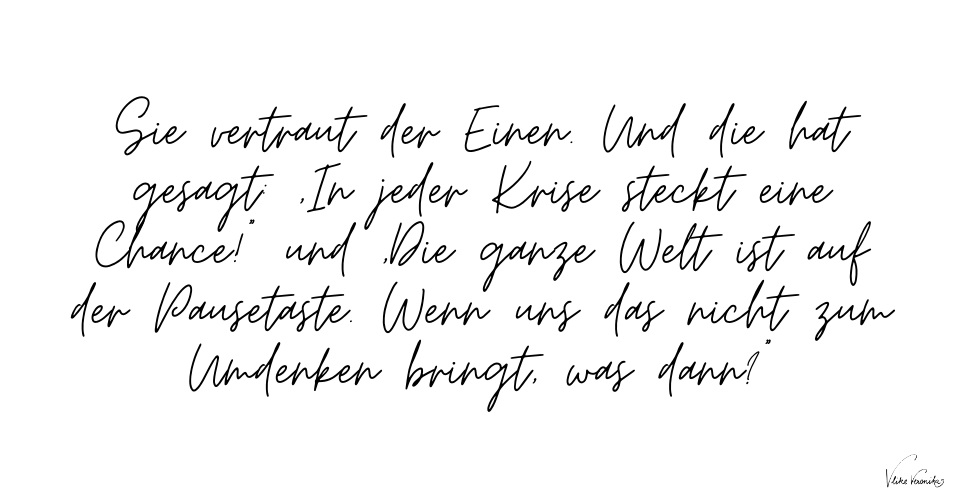 Sie vertraut der Einen. Und die hat
gesagt: „In jeder Krise steckt eine
Chance!" und „Die ganze Welt ist auf
der Pausetaste. Wenn uns das nicht zum
Umdenken bringt, was dann?"
V like Veronika